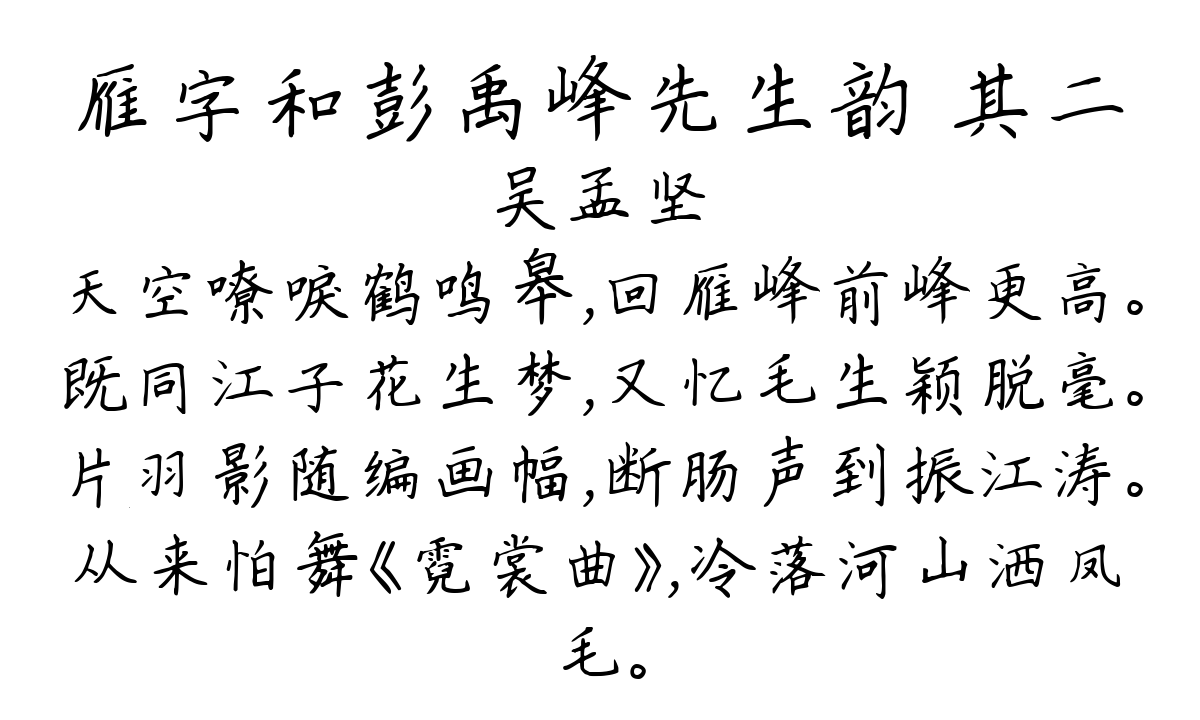 雁字和彭禹峰先生韵 其二
吴孟坚
天空嘹唳鹤鸣皋,回雁峰前峰更高。
既同江子花生梦,又忆毛生颖脱毫。
片羽影随编画幅,断肠声到振江涛。
从来怕舞《霓裳曲》,冷落河山洒凤
毛。